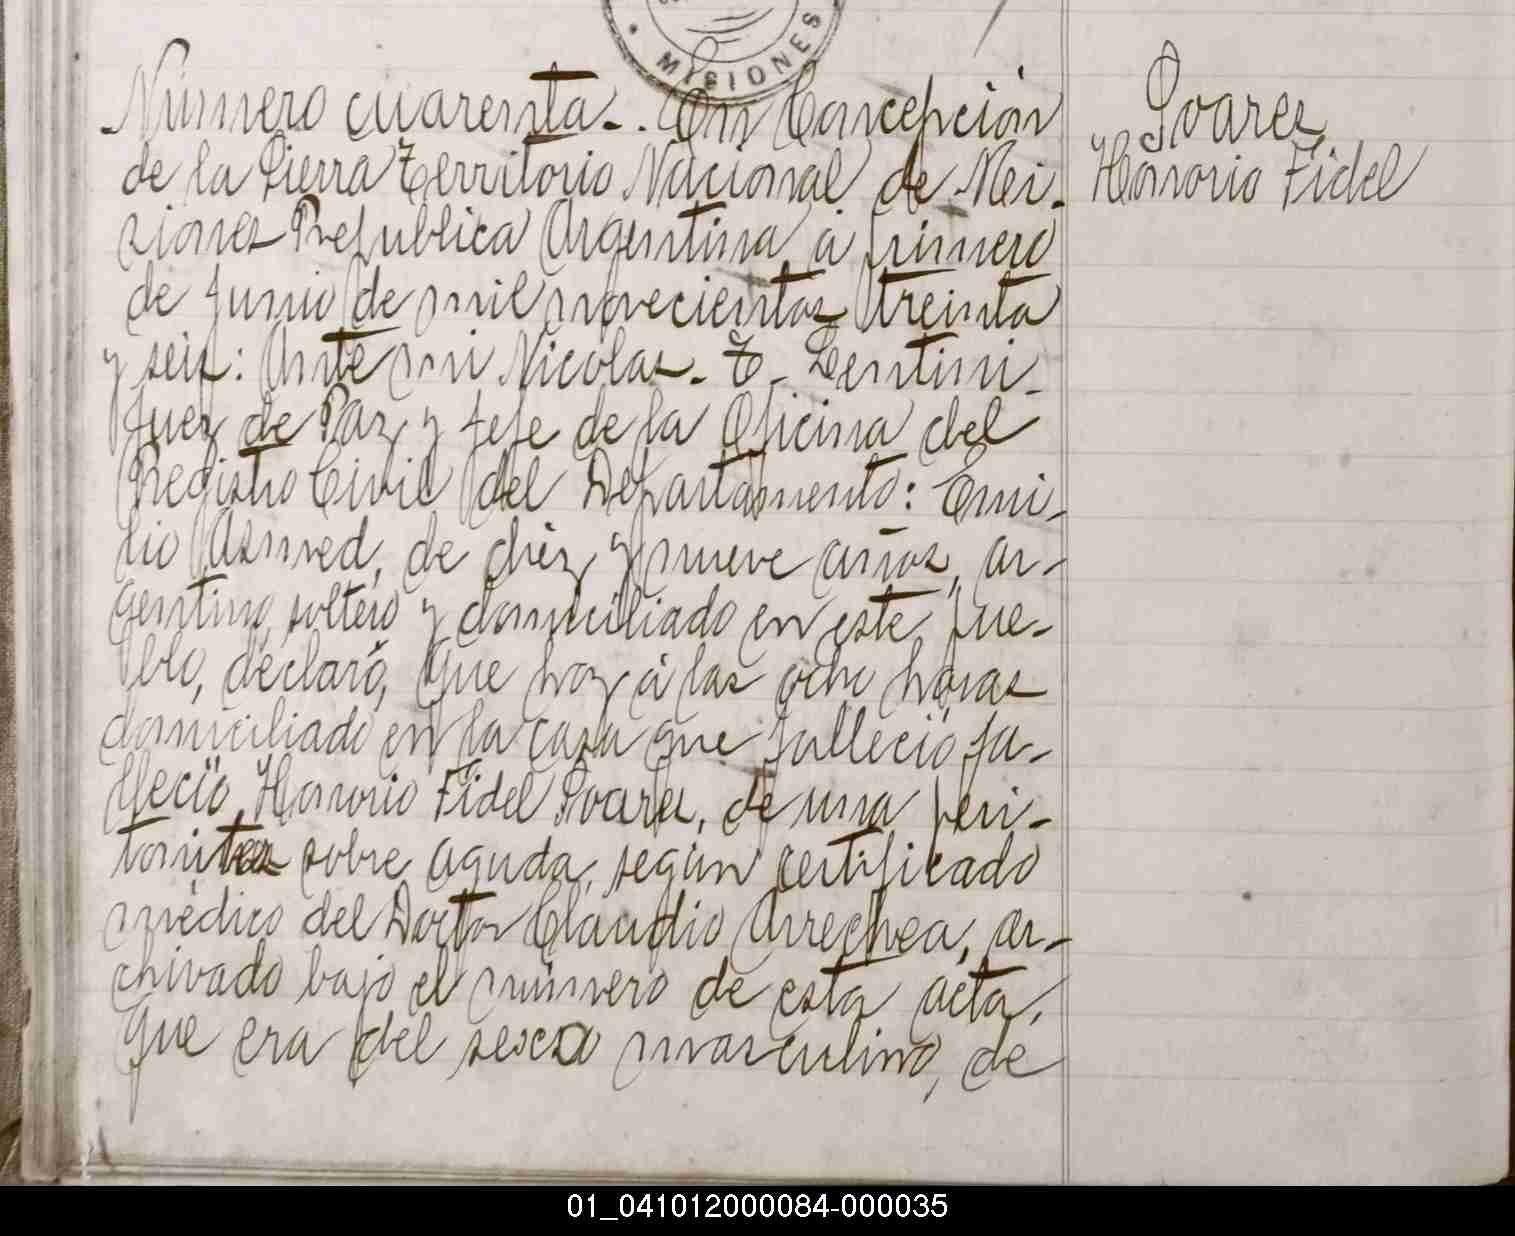 MISIONES
Número cuarenta-. En Concepción
de la Sierra Territorio Nacional de Mi-
siones Republica Argentina á primero
de Junio de mil novecientos treinta
y seis: Ante mi Nicolas. T. Lentini-
Juez de Paz y Jefe de la Oficina del
Registro Civil del Departamento: Emi-
lio Asmed, de diez y nueve años, ar-
gentino, soltero y domiciliado en este pue-
blo, declaró, que hoy á las ocho horas
domiciliado en la casa que falleció fa-
lleció, Honorio Fidel Soares, de una peri-
sobre aguda, según certificado
médico del Doctor Claudio Arrechea, ar-
chivado bajo el número de esta acta,
que era del sexo masculino, de
Soares
Honorio Fidel
01_041012000084-000035